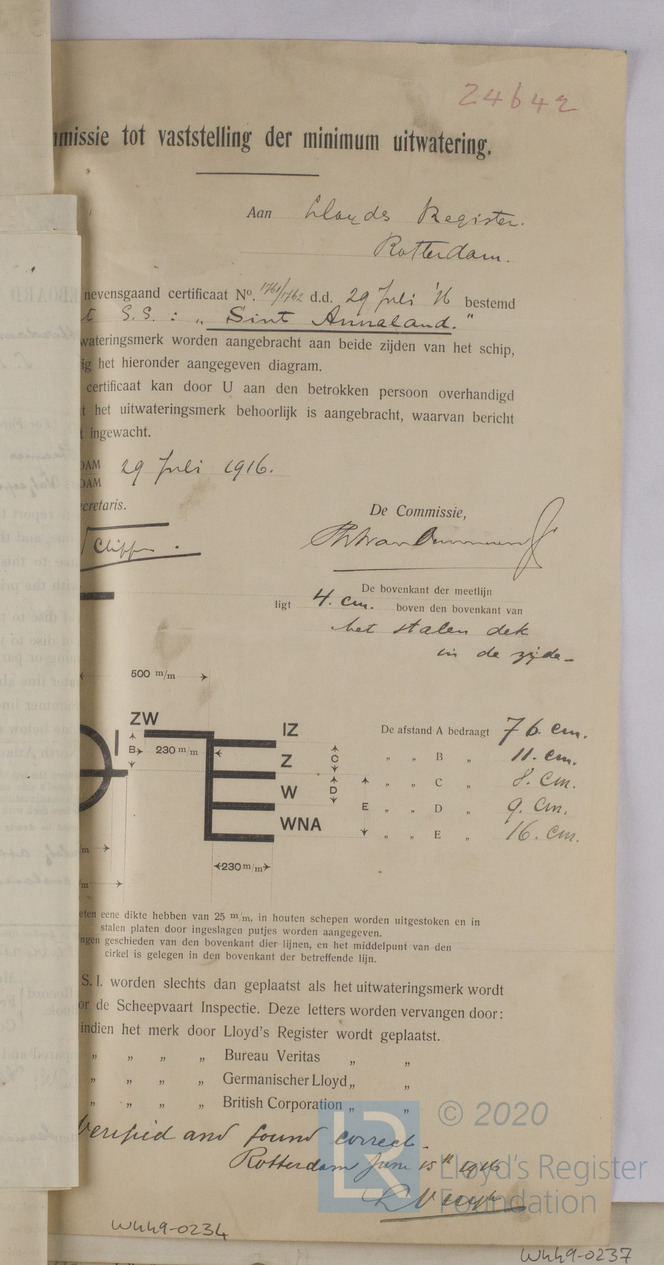 24642
mmissie tot vaststelling der minimum uitwatering.
Aan Lloyds Register.
Rotterdam.
nevensgaand certificaat No. 1761/1762 d.d. 29 Juli '16 bestemd
t S.S. : „ Sint Annaland."
wateringsmerk worden aangebracht aan beide zijden van het schip,
ig het hieronder aangegeven diagram.
certificaat kan door U aan den betrokken persoon overhandigd
t het uitwateringsmerk behoorlijk is aangebracht, waarvan bericht
t ingewacht.
DAM 29 Juli 1916.
DAM
ecretaris.
De Commissie,
De bovenkant der meetlijn
ligt 4. cm. boven den bovenkant van
het stalen dek
in de zijde
500 m/m
ZW
I
IZ
B
230 m/m
Z
C
W
D
E
WNA
230 m/m
De afstand A bedraagt 76. cm.
„ „ B „ 11. cm.
„ „ C „ 8. cm.
„ „ D „ 9. cm.
„ „ E „ 16. cm.
m
/m
eten eene dikte hebben van 25 m/m, in houten schepen worden uitgestoken en in
stalen platen door ingeslagen putjes worden aangegeven.
ngen geschieden van den bovenkant dier lijnen, en het middelpunt van den
cirkel is gelegen in den bovenkant der betreffende lijn.
S. I. worden slechts dan geplaatst als het uitwateringsmerk wordt
or de Scheepvaart Inspectie. Deze letters worden vervangen door:
indien het merk door Lloyd's Register wordt geplaatst.
„ „ „ „ Bureau Veritas „ „
„ „ „ „ Germanischer Lloyd „ „
„ „ „ „ British Corporation „ „
Verified and found correct
Rotterdam June 15th 1916
LR
© 2020
Lloyd's Register
Foundation
W449-0234
W449-0237